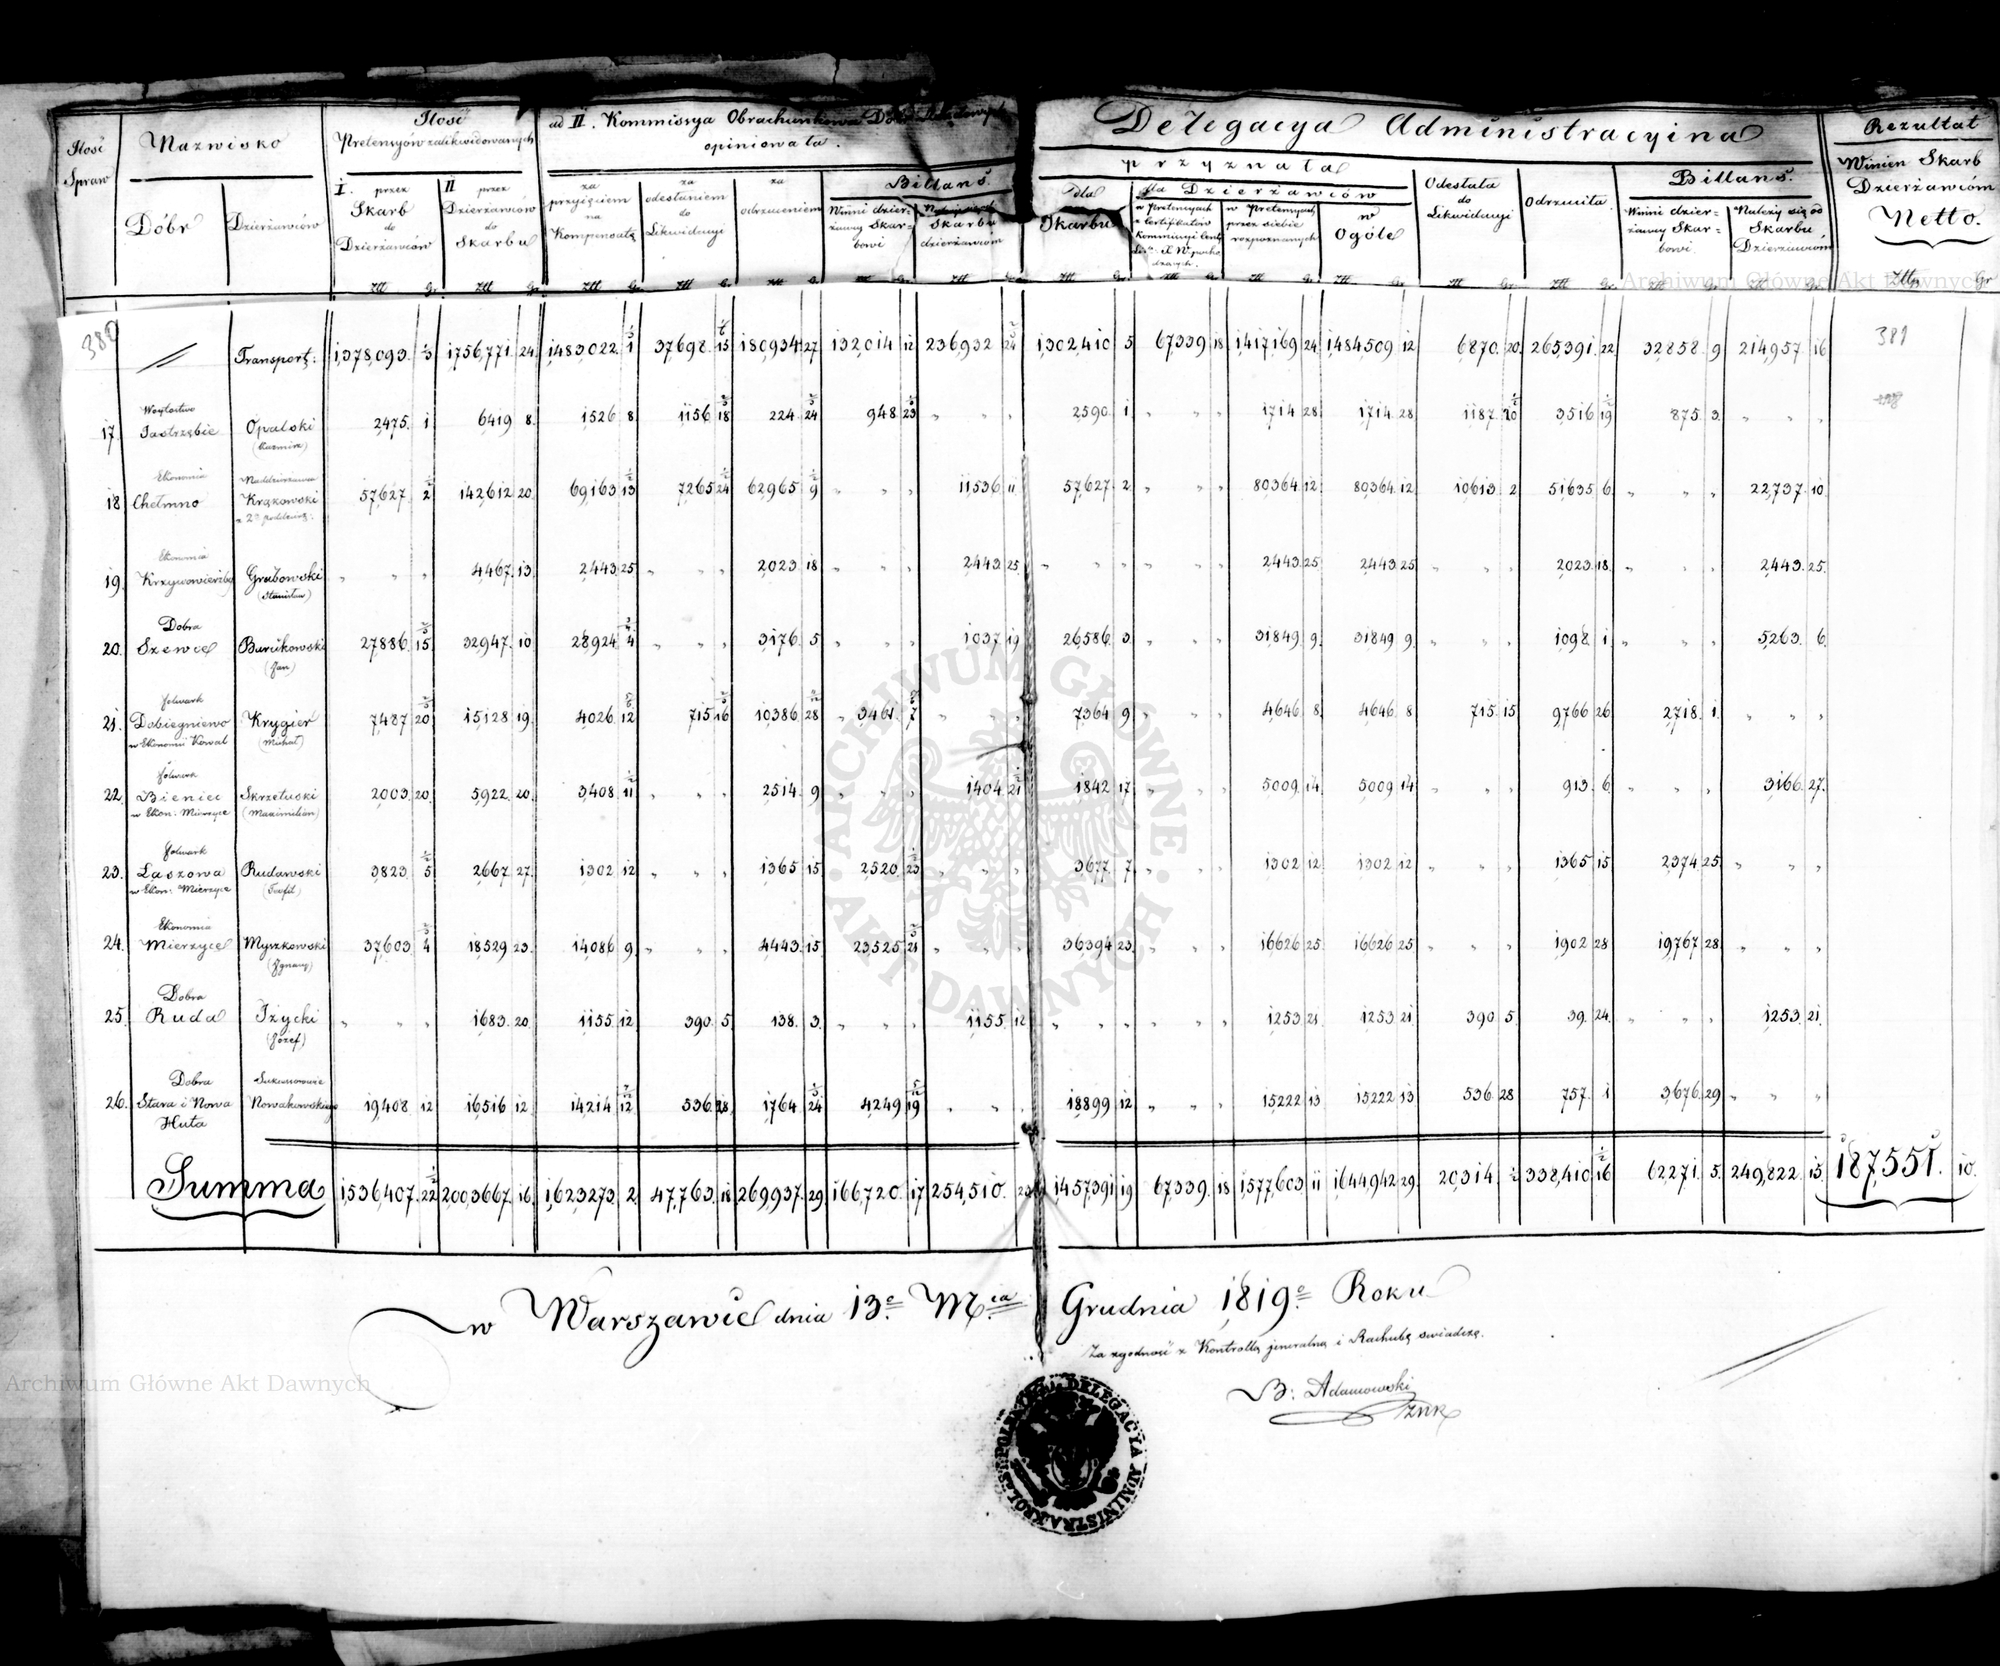 Ilość Spraw
Nazwisko
Dóbr
Dzierżawców
Ilość
Pretensyów zalikwidowanych
I. przez Skarb do Dzierżawców
II przez Dzierżawców do Skarbu
ad II. Kommissya Obrachunkowa
opiniowała.
za przyjęciem na Kompensatę
za odesłaniem do Likwidacyi
za odrzuceniem
Billans.
Winni dzierżawcy Skarbowi
Skarbu dzierżawcom
Delegacya Administracyina
przyznała
dla Skarbu
dla Dzierżawców
w Pretensyach przez siebie rozpoznanych
w Ogóle
Odesłała do Likwidacyi
Odrzuciła
Billans.
Winni dzierżawcy Skarbowi
Należy się od Skarbu Dzierżawcom
Rezultat
Winien Skarb Dzierżawcom
Netto.
380
Transport: 1,378,093. 1,756,771. 24. 1,483,022. 37698. 15 180,934 27 132,014 12 236,932 24 1,302,410 5 67,339 18 1,417,169 24 1,484,509 12 6870. 20 265,391. 22 32,858 9 214,957 16
381
17. Woytostwo Jastrzębie Opalski (Kazimierz) 2475. 1 6419 8. 1526 8 1156 18 224 24 948 23 " " " 2590 1 " " " 1714 28 1714 28 1187 20 3516 19 875 3. " " "
18 Ekonomia Chełmno Krąkowski 57,627 2 142,612 20. 69,163 13 7265 24 62,965 9 " " " 11536 11 57,627 2 " " " 80364 12 80,364 12 10,613 2 51,635 6. " " " 22,737. 10
19. Ekonomia Krzywowierzby Grabowski (Stanisław) " " " 4467. 13. 2443 25 " " " 2023 18 " " " 2443 25. " " " " " " 2443. 25 2443 25 " " " 2023. 18. " " " 2,443. 25.
20. Dobra Szewce (Jan) 27886. 15 32,947. 10 28924 4 " " " 3176. 5 " " " 1037. 19 26,586. 3 " " " 31849 9. 31849 9. " " " 1098 1. " " " 5,263. 6.
21. Folwark Dobiegniewo w Ekonomii Kowal Krygier (Michał) 7487 20 15128 19. 4026 12 715 16 10386 28 3461. 7 " " " 7364 9 " " " 4646 8. 4646 8 715. 15 9,766 26 2,718. 1. " " "
22. Folwark Bieniec w Ekon: Mierzyce Skrzetuski (Maximilian) 2003. 20. 5922. 20. 3408. 11 " " " 2514. 9 " " " 1404. 21 1842 17 " " " 5009. 14. 5009 14 " " " 913. 6. " " " 3,166. 27.
23. Folwark Laszowa w Ekon: Mierzyce Rudawski (Teofil) 3823 5 2667 27. 1302 12 " " " 1365 15 2520. 23 " " " 3677. 7. " " " 1302 12 1302 12 " " " 1365 15 2374 25 " " "
24. Ekonomia Mierzyce Myszkowski (Ignacy) 37603. 4 18529 23. 14086 9 " " " 4443. 15 23,525 24 " " " 36394 23. " " " 16626 25 16626 25 " " " 1902 28 19,767 28 " " "
25. Dobra Ruda Iżycki (Józef) " " " 1683. 20. 1155 12 390. 5 138. 3. " " " 1155 12 " " " " " " 1253 21 1253 21. 390 5. 39. 24. " " " 1253. 21.
26. Dobra Stara i Nowa Huta Sukcessorowie Nowakowskiego 19,408 12 16,516 12. 14214 12 536 28 1764. 24 4249 19 " " " 18899 12 " " " 15222 13 15222 13 536. 28 757. 1 3,676. 29 " " "
Summa 1,536,407. 22 2,003,667. 16. 1,623,273. 2. 47,763. 18 269,937. 29 166,720. 17 254,510. 1,457,391 19 67,339. 18 1,577,603 11 1,644,942 29. 20,314. 338,410 16 62,271. 5. 249,822. 15. 187,551. 10.
w Warszawie dnia 13º Mca Grudnia 1819º Roku
Za zgodność z Kontrollą jeneralną i Rachubą świadczę.
B: Adamowski
DELEGACYA ADMINISTRA
Archiwum Główne Akt Dawnych
ARCHIWUM GŁÓWNE · AKT DAWNYCH ·
Archiwum Główne Akt Dawnych